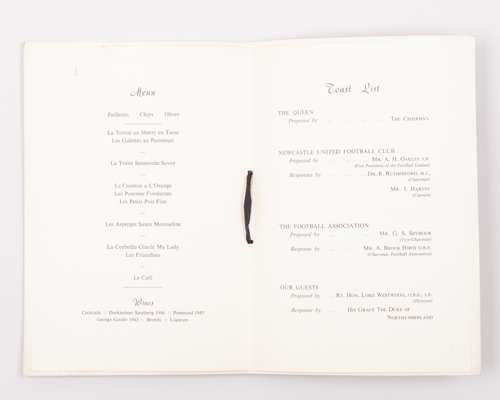 Menu
Paillettes Chips Olives
La Tortue au Sherry en Tasse
Les Galettes au Parmesan
La Truite Saumonée Savoy
Le Caneton à l'Orange
Les Pommes Fondantes
Les Petits Pois Fins
Les Asperges Sauce Mousseline
La Corbeille Glacée My Lady
Les Friandises
Le Café
Wines
Cocktails - Durkheimer 1946 - Pommard 1945
Georges Goulet 1943 - Brandy - Liqueurs
Toast List
THE QUEEN
Proposed by THE CHAIRMAN
NEWCASTLE UNITED FOOTBALL CLUB
Proposed by MR. A. H. OAKLEY, J.P.
(Vice President of the Football League)
Responses by DR. R. RUTHERFORD, M.C.
(Chairman)
MR. J. HARVEY
(Captain)
THE FOOTBALL ASSOCIATION
Proposed by MR. G. S. SEYMOUR
(Vice-Chairman)
Response by MR. A. BROOK HIRST O.B.E.
(Chairman, Football Association)
OUR GUESTS
Proposed by RT. HON. LORD WESTWOOD, O.B.E., J.P.
(Director)
Response by HIS GRACE THE DUKE OF
NORTHUMBERLAND